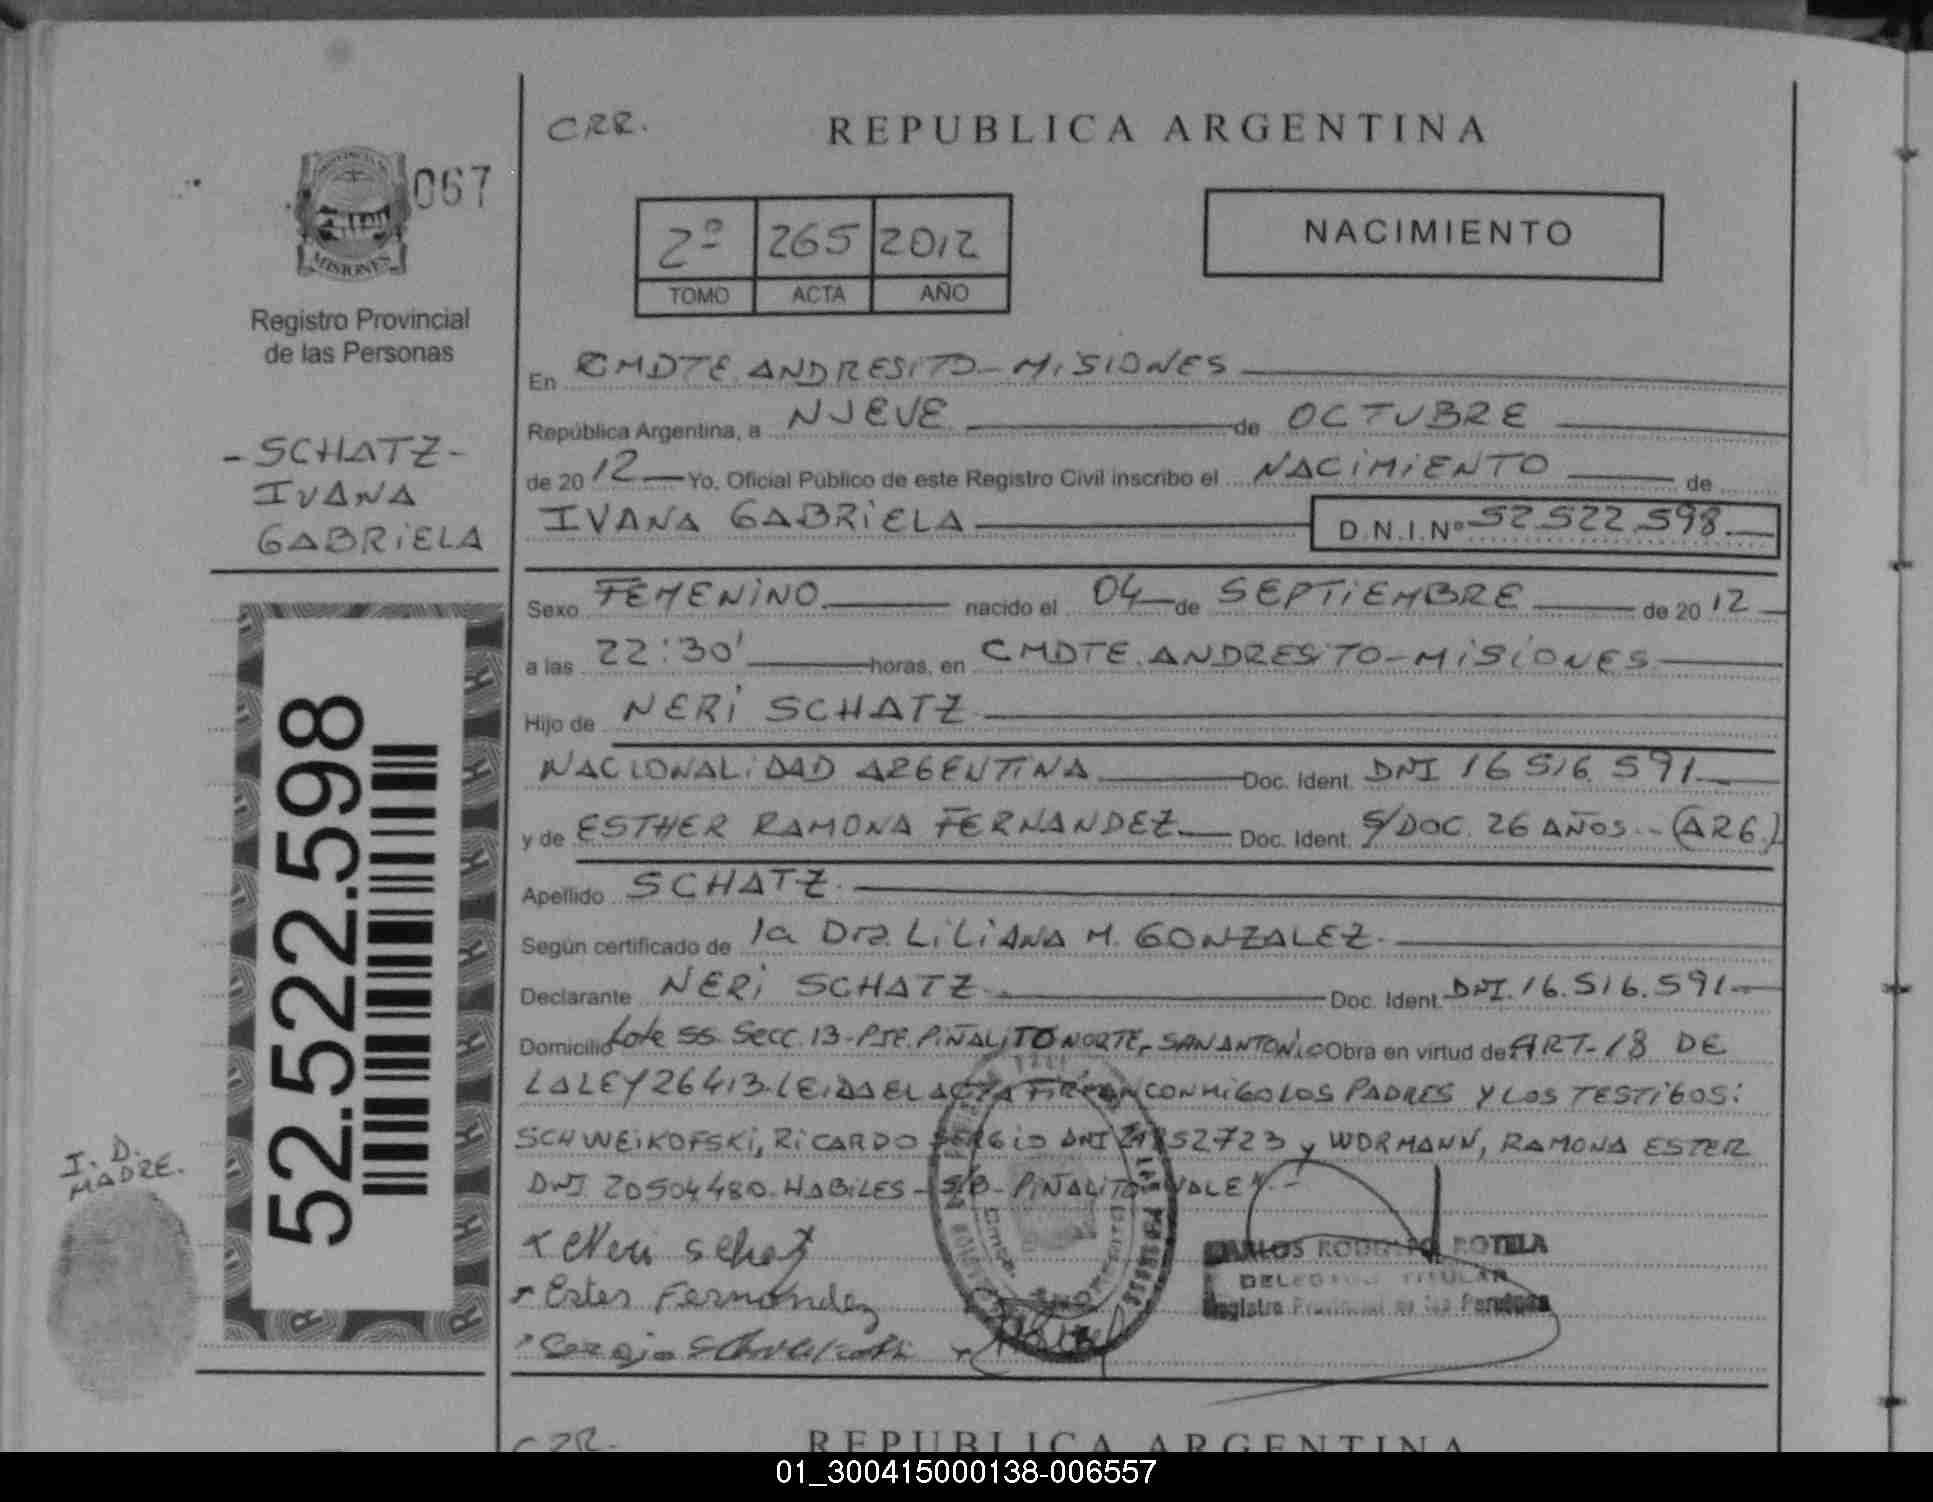 CRR.
REPUBLICA ARGENTINA
067
MISIONES
Registro Provincial
de las Personas
2º 265 2012
TOMO ACTA AÑO
NACIMIENTO
-SCHATZ-
IVANA
GABRIELA
52.522.598
I. D.
MADRE.
En CMDTE. ANDRESITO-MISIONES
República Argentina, a NUEVE de OCTUBRE
de 2012 Yo, Oficial Público de este Registro Civil inscribo el NACIMIENTO de
IVANA GABRIELA D.N.I.Nº 52.522.598
Sexo FEMENINO nacido el 04 de SEPTIEMBRE de 2012
a las 22:30' horas, en CMDTE. ANDRESITO-MISIONES
Hijo de NERI SCHATZ
NACIONALIDAD ARGENTINA Doc. Ident. DNI 16.516.591
y de ESTHER RAMONA FERNANDEZ Doc. Ident. S/DOC. 26 AÑOS.-(ARG.)
Apellido SCHATZ.
Según certificado de la Dra. LILIANA M. GONZALEZ.
Declarante NERI SCHATZ Doc. Ident. DNI.16.516.591
Domicilio Lote 55 Secc. 13-PJE. PIÑALITO NORTE, SAN ANTONIO Obra en virtud de ART-18 DE
LA LEY 26413. LEIDA EL ACTA FIRMAN CONMIGO LOS PADRES Y LOS TESTIGOS:
SCHWEIKOFSKI, RICARDO SERGIO DNI 852723 y WORMANN, RAMONA ESTER
DNI 20504480. HABILES - S/B- PIÑALITO VALE
Neri Schatz
Ester Fernandez
Sergio
CARLOS RODOLFO ROTELA
DELEGADO TITULAR
Registro Provincial de las Personas
CRR.
REPUBLICA ARGENTINA
01_300415000138-006557